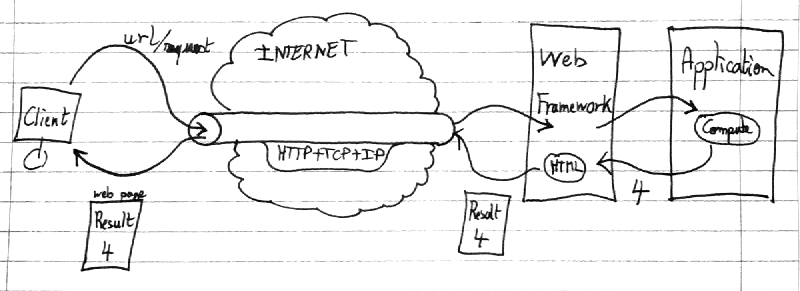 url/request
INTERNET
Client
HTTP+TCP+IP
web page
Result
4
Web
Framework
HTML
Result
4
Application
Compute
4